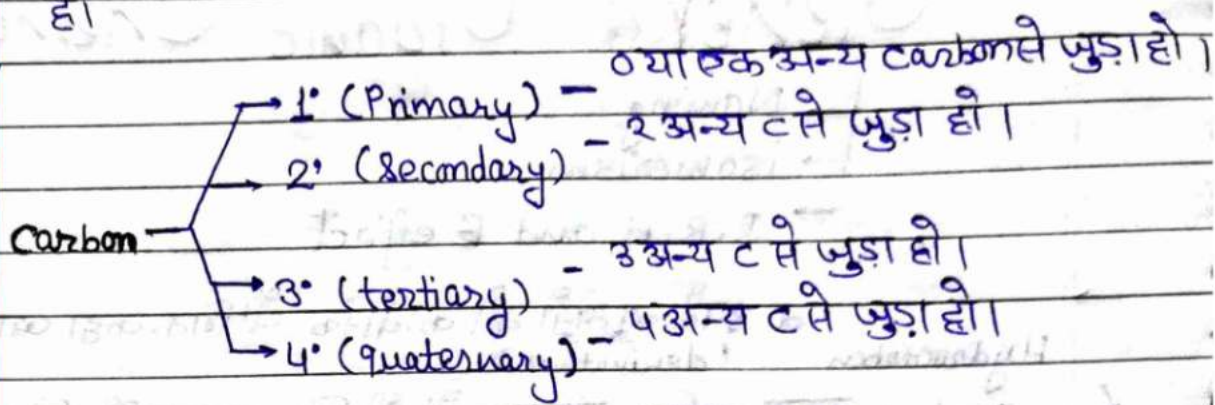 है।
1° (Primary) - 0 या एक अन्य carbon से जुड़ा हो।
2° (Secondary) - २ अन्य C से जुड़ा हो।
Carbon
3° (tertiary) - 3 अन्य C से जुड़ा हो।
4° (quaternary) - 4 अन्य C से जुड़ा हो।